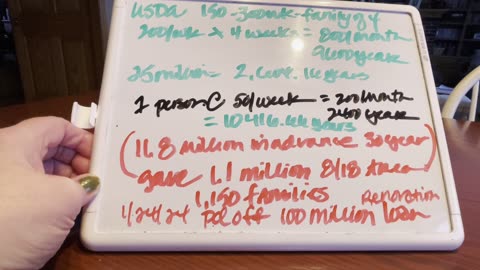 USDA 150-300wk-family of 4
200/wk x 4 weeks = 800/month
9600 year
25 million =
1 person @ 50/week = 200/month
2400 year
= 10416.66 years
(11.8 million in advance 30 year)
gave 1.1 million 8/18
1,150 families
Renovation
1/24/24 Pd off 100 million loan